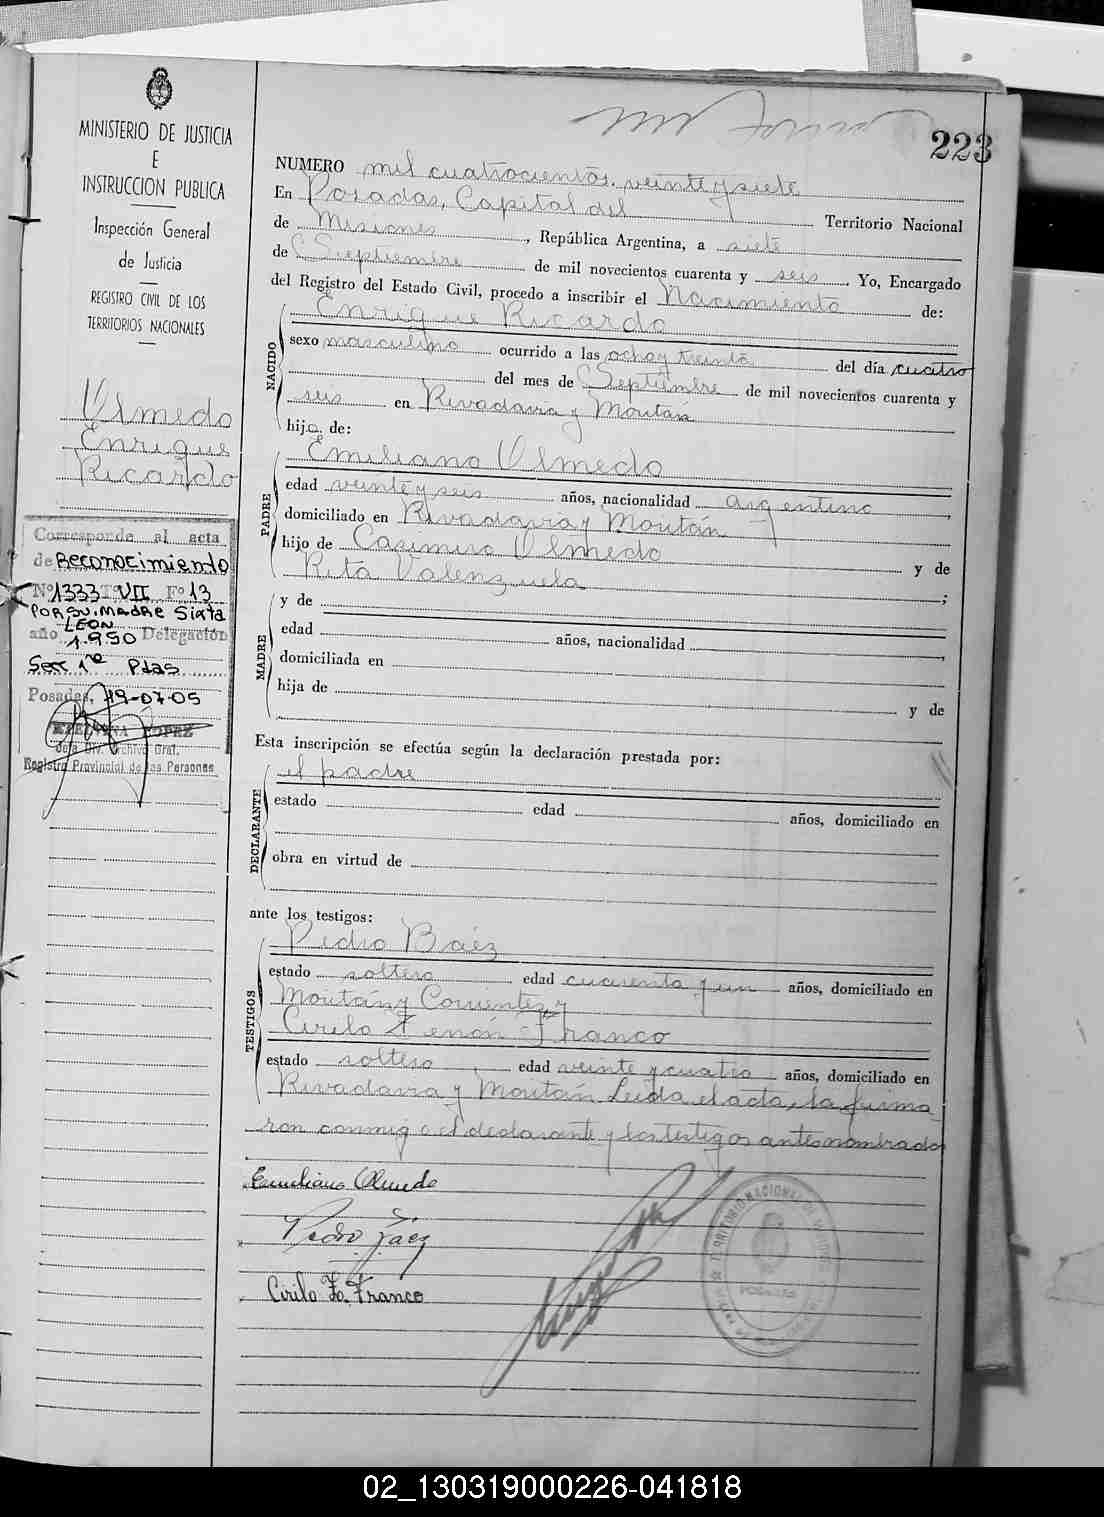 223
MINISTERIO DE JUSTICIA
E
INSTRUCCION PUBLICA
Inspección General
de Justicia
REGISTRO CIVIL DE LOS
TERRITORIOS NACIONALES
Olmedo
Enrique
Ricardo
Corresponde al acta
de Reconocimiento
Nº 1333 T VII Fº 13
POR SU MADRE Sixta
LEON
año 1.950 Delegación
Secc 1ra Pdas
Posadas, 19-07-05
LOPEZ
Jefa Div. Archivo Gral.
Registro Provincial de las Personas
NUMERO mil cuatrocientos veinte y siete
En Posadas, Capital del Territorio Nacional
de Misiones, República Argentina, a siete
de Septiembre de mil novecientos cuarenta y seis. Yo, Encargado
del Registro del Estado Civil, procedo a inscribir el Nacimiento de:
NACIDO
Enrique Ricardo
sexo masculino ocurrido a las ocho y treinta del día cuatro
del mes de Septiembre de mil novecientos cuarenta y
seis en Rivadavia y Moritán
hijo de:
PADRE
Emiliano Olmedo
edad veinte y seis años, nacionalidad argentino,
domiciliado en Rivadavia y Moritán
hijo de Casimiro Olmedo y de
Rita Valenzuela;
MADRE
y de
edad años, nacionalidad
domiciliada en
hija de y de
Esta inscripción se efectúa según la declaración prestada por:
DECLARANTE
el padre
estado edad años, domiciliado en
obra en virtud de
ante los testigos:
TESTIGOS
Pedro Báez
estado soltero edad cuarenta y un años, domiciliado en
Moritán y Corrientes y
Cirilo Zenón Franco
estado soltero edad veinte y cuatro años, domiciliado en
Rivadavia y Moritán Leida el acta, la firma
ron conmigo el declarante y los testigos antes nombrados
Emiliano Olmedo
Pedro Báez
Cirilo Z. Franco
TERRITORIO NACIONAL DE MISIONES
POSADAS
02_130319000226-041818